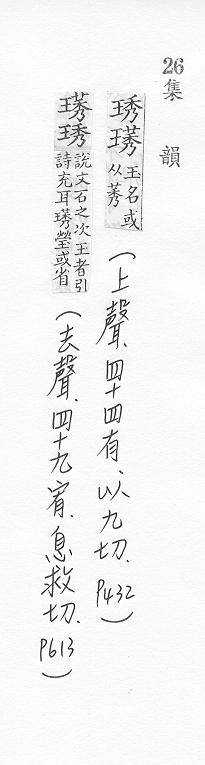 26
集韻
琇璓 玉名或从莠
(上聲、四十四有、以九切、P432)
璓琇 說文石之次玉者引詩充耳璓瑩或省
(去聲、四十九宥、息救切、P613)